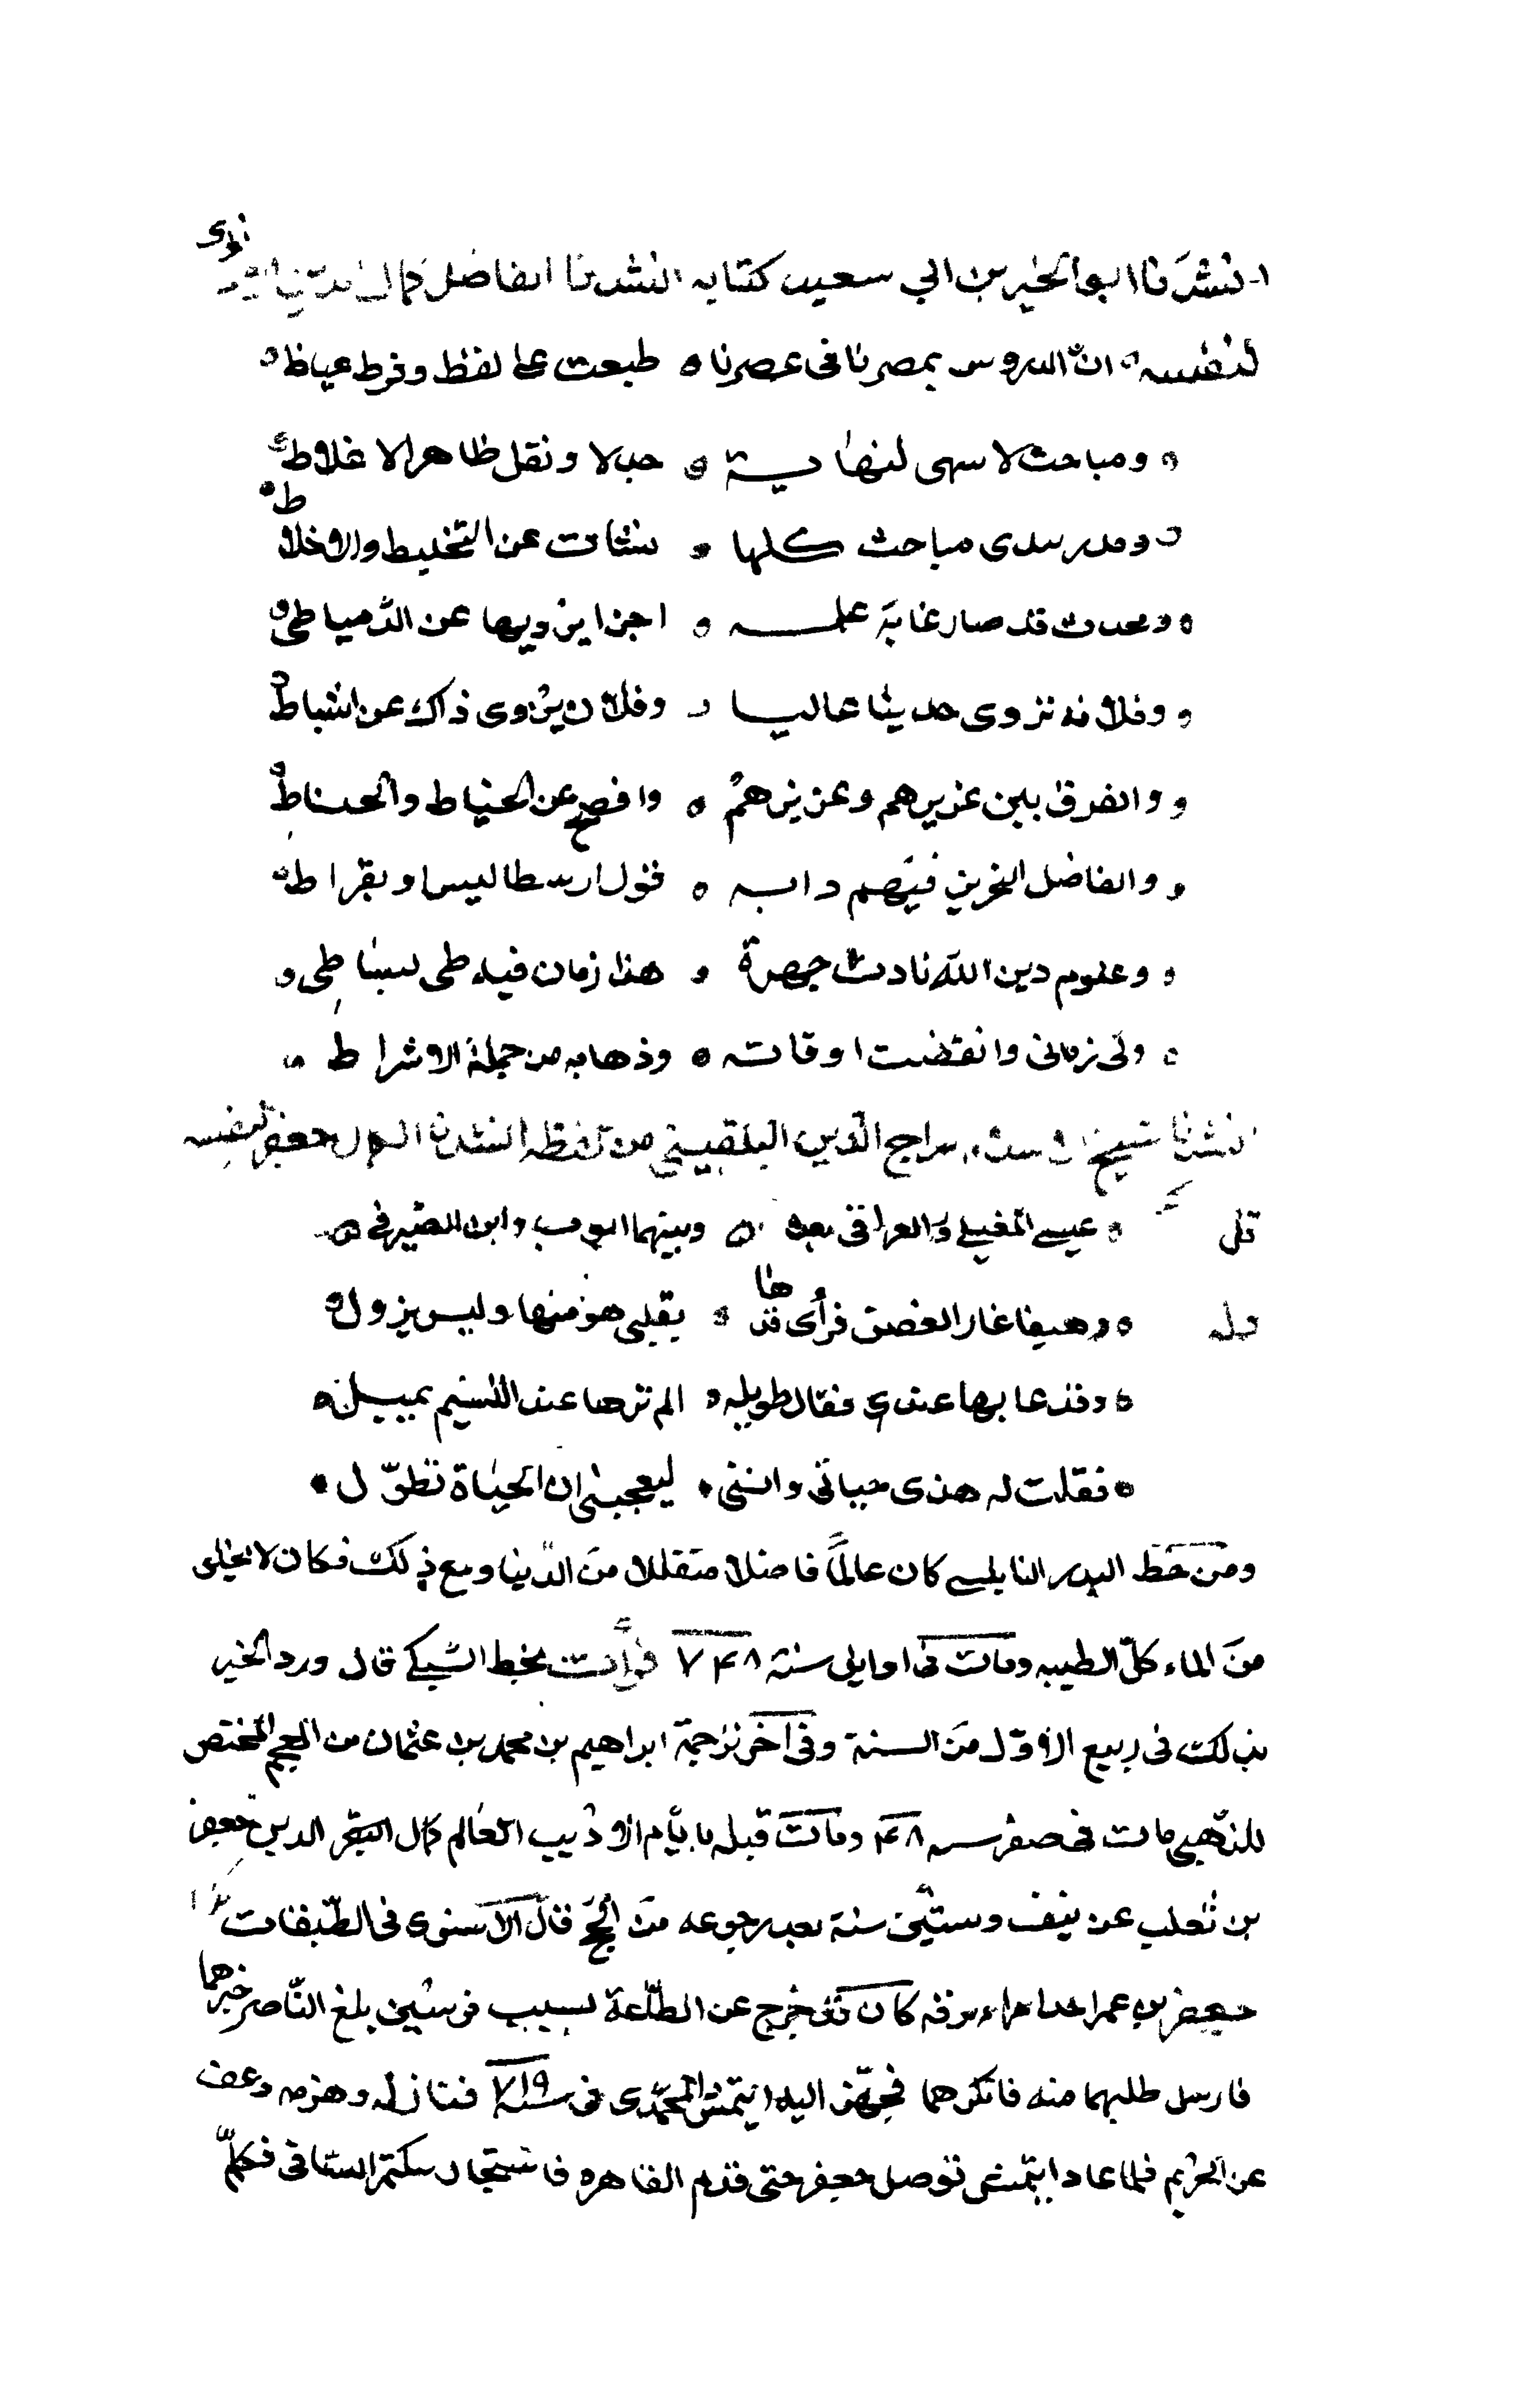 انشدنا ابو الخير بن ابي سعيد كتابه انشدنا الفاضل كمال الدين
لنفسه ان الدروس بمصرنا في عصرنا طبعت على لغط وفرط عياط
ومباحث لا تنتهى لنهاية جدلا ونقل ظاهر الاغلاط
ومدرس يبدى مباحث كلها نشات عن التخليط والاخلاط
ومحدث قد صار غاية علمه اجزا يرويها عن الدمياطى
وفلانة تروى حديثا عاليا وفلان يروى ذاك عن اسباط
والفرق بين عزيرهم وعزيزهم وافصح عن الخياط والحناط
والفاضل النحرير فيهم دابه قول ارسطاليس او بقراط
وعلوم دين الله نادت جهرة هذا زمان فيه طى بساطى
ولى زمانى وانقضت اوقاته وذهابه من جملة الاشراط
انشدنا شيخ سراج الدين البلقينى من لفظه انشدنا الكمال جعفر لنفسه
عيسى المغيلى والعراقى بعده وبينهما ايوب وابن الصيرفى
وله وهيفا غار الغصن فرأى قدها بقلبى هو منها وليس يزول
وقد عابها عندى فقال طويله الم ترها عند النسيم تميل
فقلت له هذى حياتى واننى ليعجبنى ان الحياة تطوّل
ومن خط البدر النابلسى كان عالما فاضلا متقللا من الدّنيا ومع ذلك فكان لا يخلى
من الماءكل الطيبه ومات فى اوايل سنة ٧٤٨ قرأت بخط السبكى قال ورد الخبر
بذلك فى ربيع الاوّل من السنة وفى آخر ترجمة ابراهيم بن محمد بن عثمان من المعجم المختص
للذهبى مات فى صفر سنه ٧٤٨ ومات قبله بايّام الاديب العالم كمال الدين جعفر
بن ثعلب عن نيف وستين سنة بعد رجوعه من الحج قال الاسنوى فى الطبقات
جعفر بن عمر احد امراء برقه كان قد خرج عن الطاعة بسبب فرسين بلغ الناصر خبرهما
فارسل طلبهما منه فانكرهما فجهّز اليه ايتمش المحمدى فى سنة ٧١٩ فنازله وهزمه وعف
عن الحريم فلما عاد ايتمش توصل جعفر حتى قدم القاهره فاستجار بكتمر الساقى فكلّم